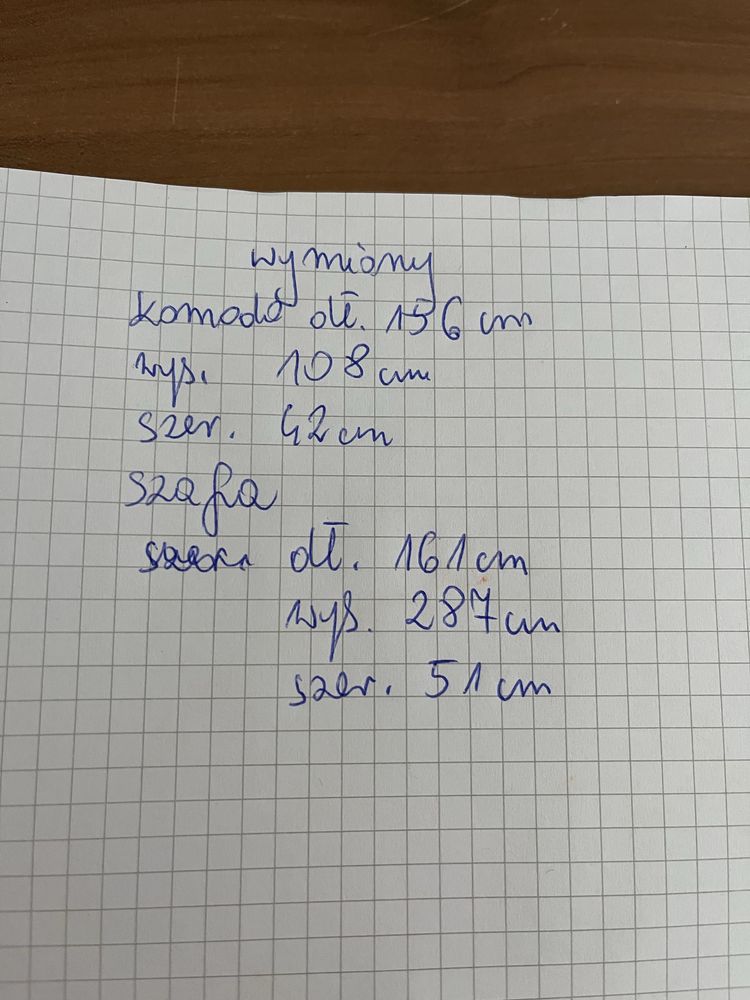 wymiary
komoda dł. 156 cm
wys. 108 cm
szer. 42 cm
szafa
dł. 161 cm
wys. 287 cm
szer. 51 cm